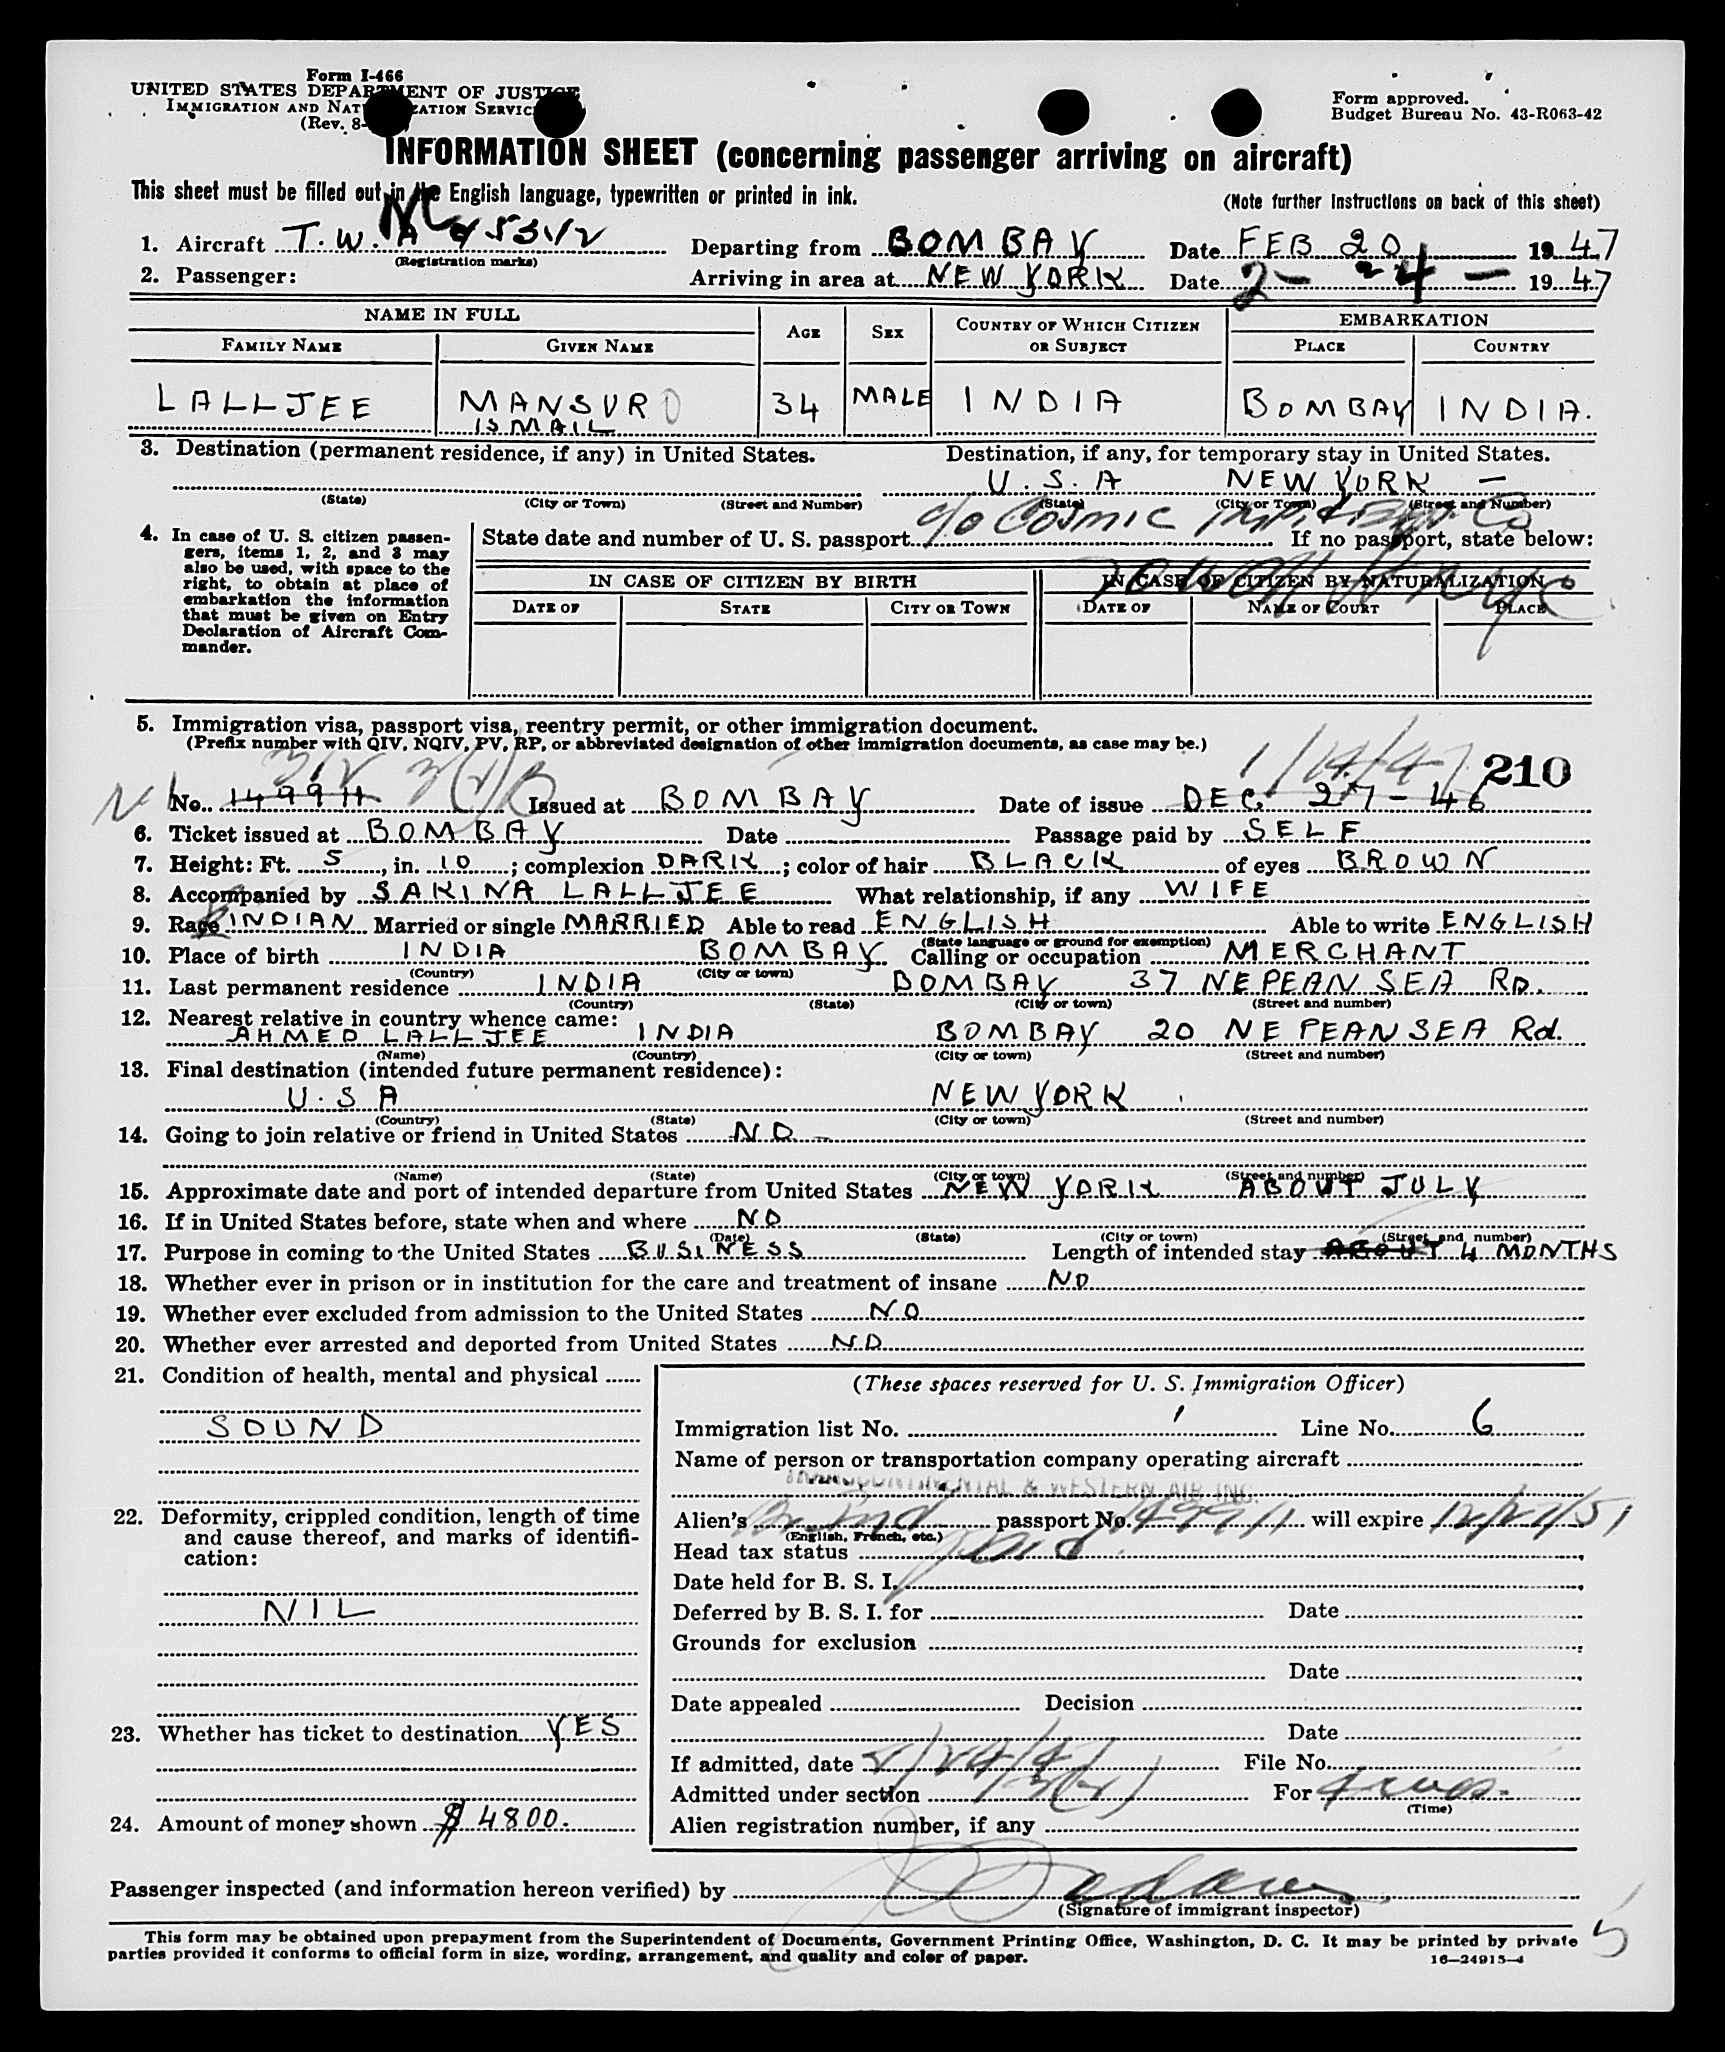 Form I-466
UNITED STATES DEPARTMENT OF JUSTICE
IMMIGRATION AND NATURALIZATION SERVICE
(Rev. 8-
Form approved.
Budget Bureau No. 43-R063-42
INFORMATION SHEET (concerning passenger arriving on aircraft)
This sheet must be filled out in the English language, typewritten or printed in ink.
(Note further instructions on back of this sheet)
1. Aircraft T.W.A Departing from BOMBAY Date FEB 20 1947
(Registration marks)
2. Passenger: Arriving in area at NEW YORK Date 2-24- 1947
NAME IN FULL AGE SEX COUNTRY OF WHICH CITIZEN OR SUBJECT EMBARKATION
FAMILY NAME GIVEN NAME PLACE COUNTRY
LALLJEE MANSUR 34 MALE INDIA BOMBAY INDIA.
ISMAIL
3. Destination (permanent residence, if any) in United States. Destination, if any, for temporary stay in United States.
U.S.A NEW YORK —
(State) (City or Town) (Street and Number) (State) (City or Town) (Street and Number)
c/o Cosmic Co
4. In case of U. S. citizen passengers, items 1, 2, and 3 may also be used, with space to the right, to obtain at place of embarkation the information that must be given on Entry Declaration of Aircraft Commander.
State date and number of U. S. passport If no passport, state below:
IN CASE OF CITIZEN BY BIRTH IN CASE OF CITIZEN BY NATURALIZATION
DATE OF STATE CITY OR TOWN DATE OF NAME OF COURT PLACE
5. Immigration visa, passport visa, reentry permit, or other immigration document.
(Prefix number with QIV, NQIV, PV, RP, or abbreviated designation of other immigration documents, as case may be.)
1/14/47 210
No. 149911 Issued at BOMBAY Date of issue DEC 27-46
6. Ticket issued at BOMBAY Date Passage paid by SELF
7. Height: Ft. 5, in. 10; complexion DARK; color of hair BLACK of eyes BROWN
8. Accompanied by SAKINA LALLJEE What relationship, if any WIFE
9. Race INDIAN Married or single MARRIED Able to read ENGLISH Able to write ENGLISH
(State language or ground for exemption)
10. Place of birth INDIA BOMBAY Calling or occupation MERCHANT
(Country) (City or town)
11. Last permanent residence INDIA BOMBAY 37 NEPEAN SEA RD.
(Country) (State) (City or town) (Street and number)
12. Nearest relative in country whence came:
AHMED LALLJEE INDIA BOMBAY 20 NEPEAN SEA Rd.
(Name) (Country) (City or town) (Street and number)
13. Final destination (intended future permanent residence):
U.S A NEW YORK
(Country) (State) (City or town) (Street and number)
14. Going to join relative or friend in United States NO -
(Name) (State) (City or town) (Street and number)
15. Approximate date and port of intended departure from United States NEW YORK ABOUT JULY
16. If in United States before, state when and where NO
(Date) (State) (City or town) (Street and number)
17. Purpose in coming to the United States BUSINESS Length of intended stay ABOUT 4 MONTHS
18. Whether ever in prison or in institution for the care and treatment of insane NO
19. Whether ever excluded from admission to the United States NO
20. Whether ever arrested and deported from United States NO
21. Condition of health, mental and physical
SOUND
22. Deformity, crippled condition, length of time and cause thereof, and marks of identification:
NIL
23. Whether has ticket to destination YES
24. Amount of money shown $ 4800.
(These spaces reserved for U. S. Immigration Officer)
Immigration list No. 1 Line No. 6
Name of person or transportation company operating aircraft
TRANSCONTINENTAL & WESTERN AIR INC.
Alien's Br Ind passport No. 149911 will expire 12/27/51
(English, French, etc.)
Head tax status
Date held for B. S. I.
Deferred by B. S. I. for Date
Grounds for exclusion
Date
Date appealed Decision
Date
If admitted, date 2/24/47 File No.
Admitted under section 3(2) For 4 mos.
(Time)
Alien registration number, if any
Passenger inspected (and information hereon verified) by
(Signature of immigrant inspector)
This form may be obtained upon prepayment from the Superintendent of Documents, Government Printing Office, Washington, D. C. It may be printed by private
parties provided it conforms to official form in size, wording, arrangement, and quality and color of paper.
16—24915-4
5